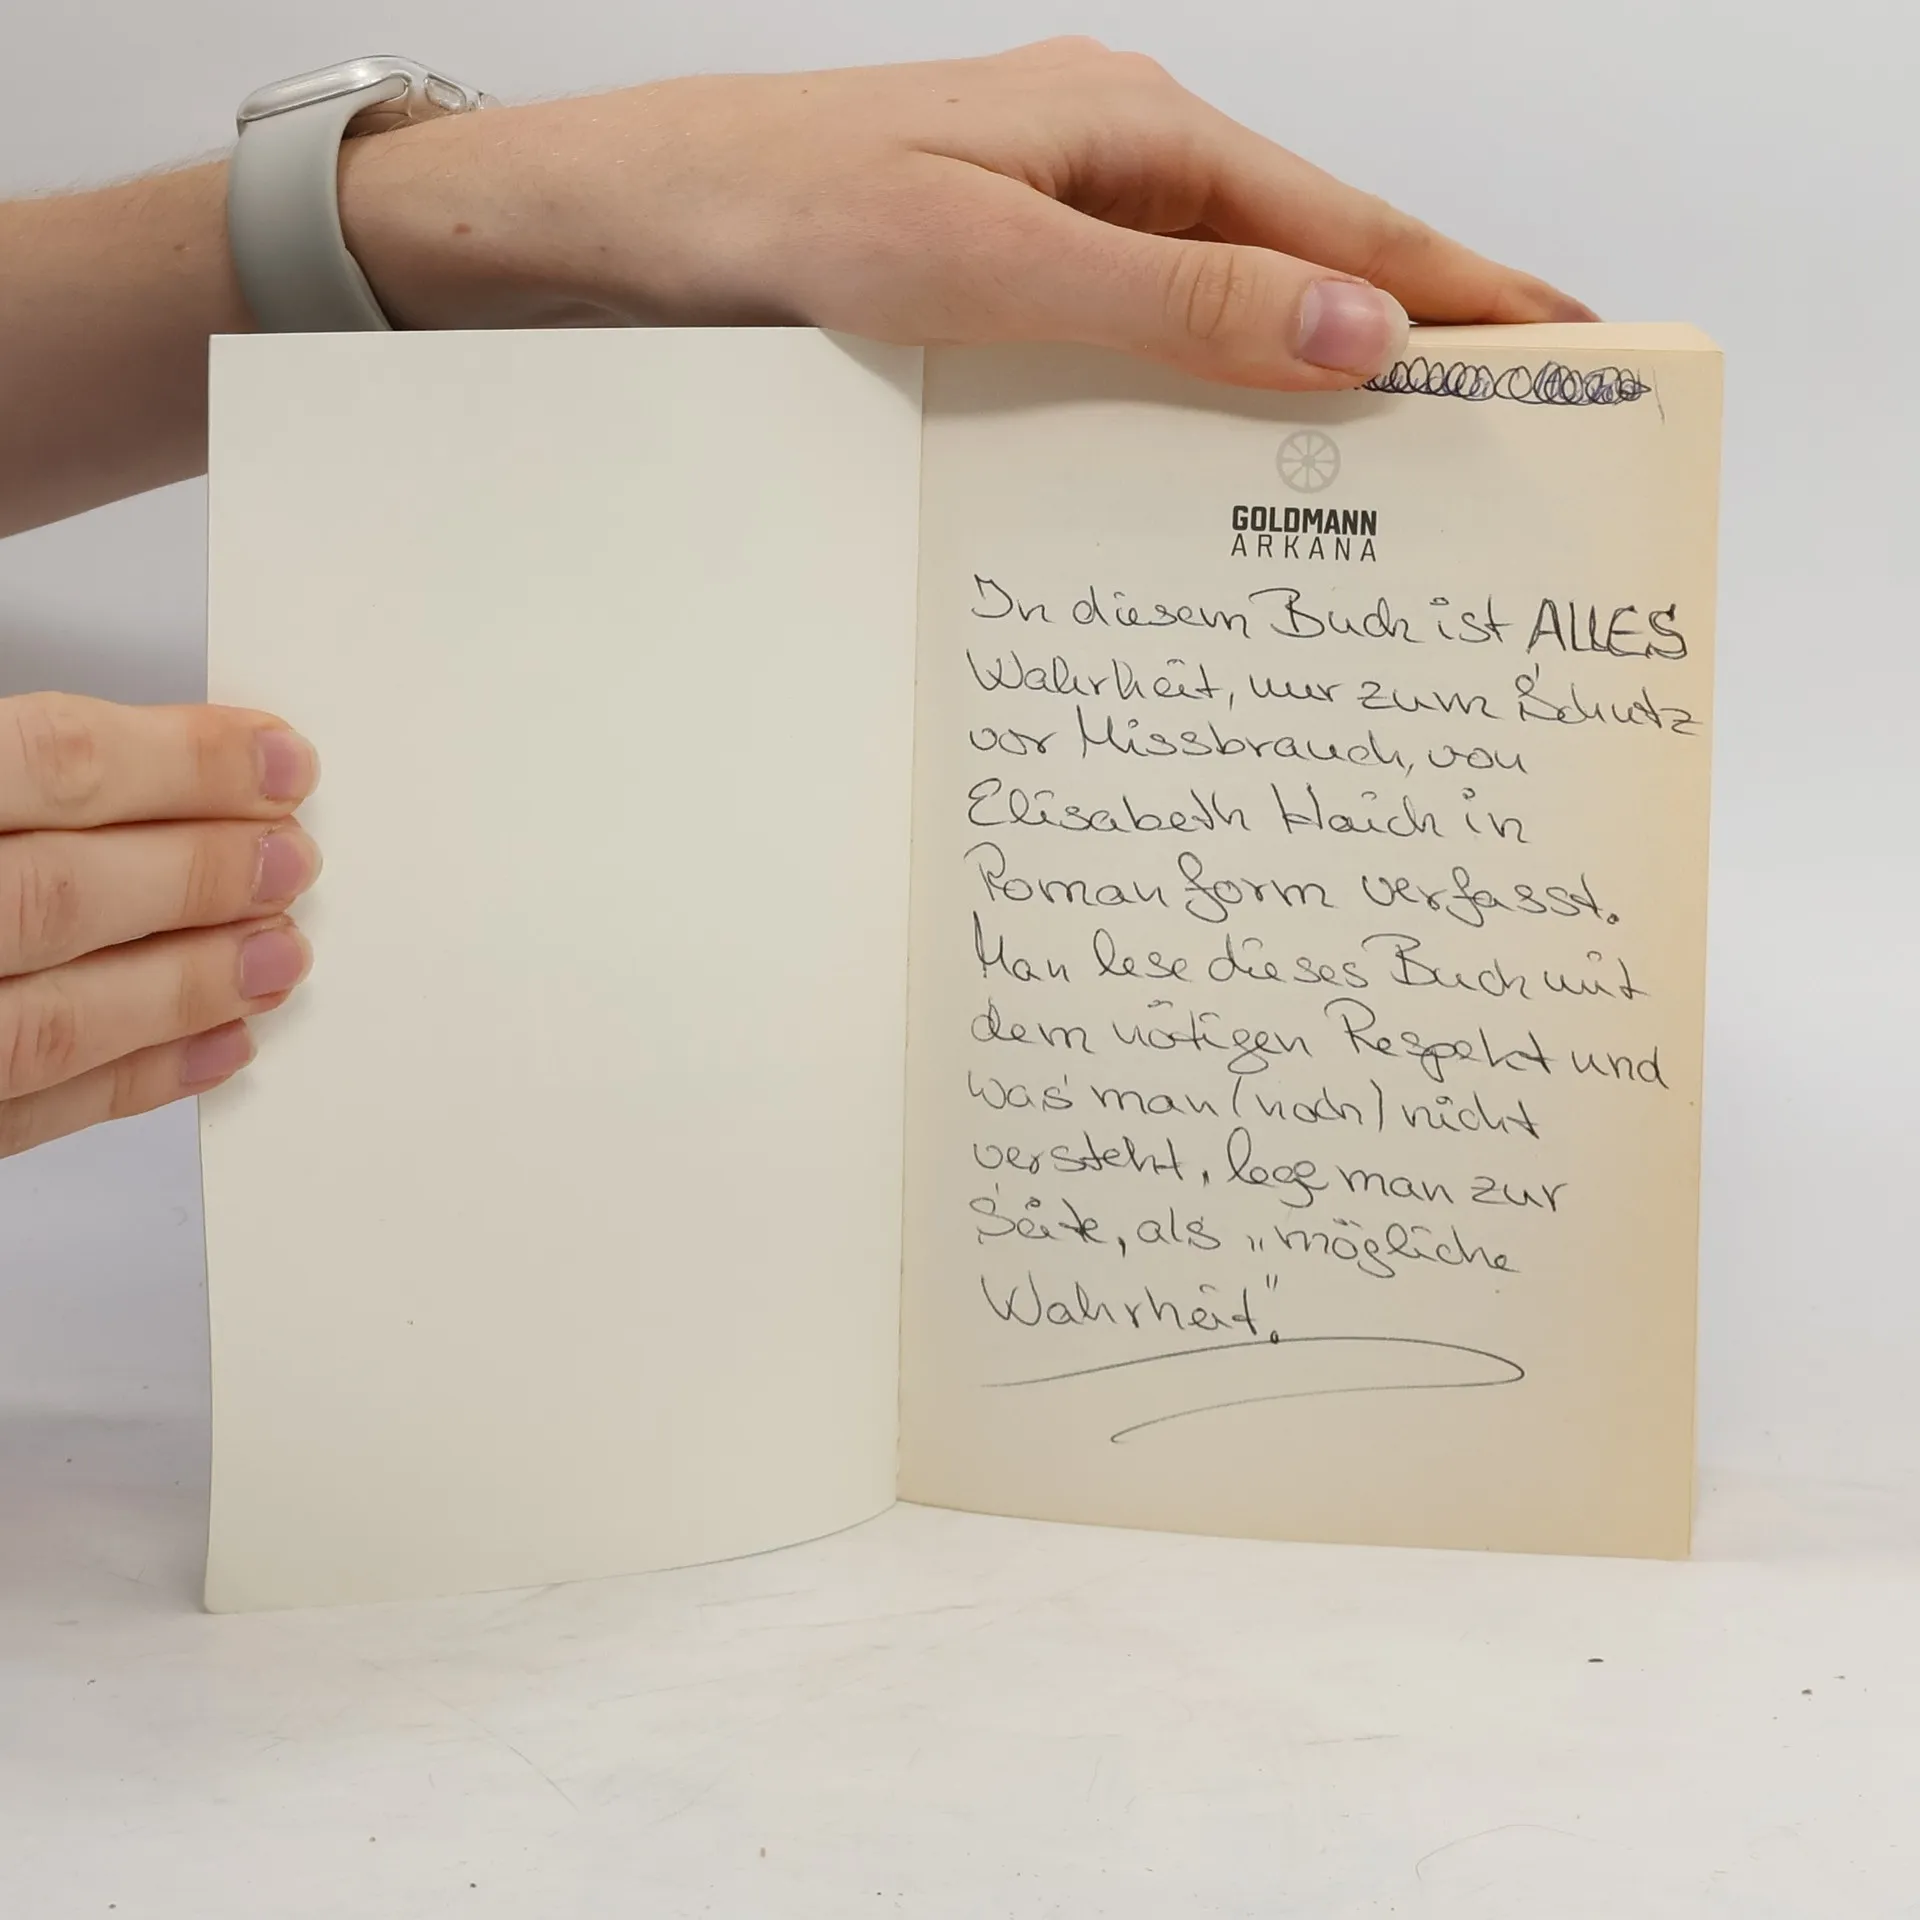 GOLDMANN
ARKANA
In diesem Buch ist ALLES
Wahrheit, nur zum Schutz
vor Missbrauch, von
Elisabeth Haich in
Romanform verfasst.
Man lese dieses Buch mit
dem nötigen Respekt und
was man (noch) nicht
versteht, lege man zur
Seite, als „mögliche
Wahrheit".